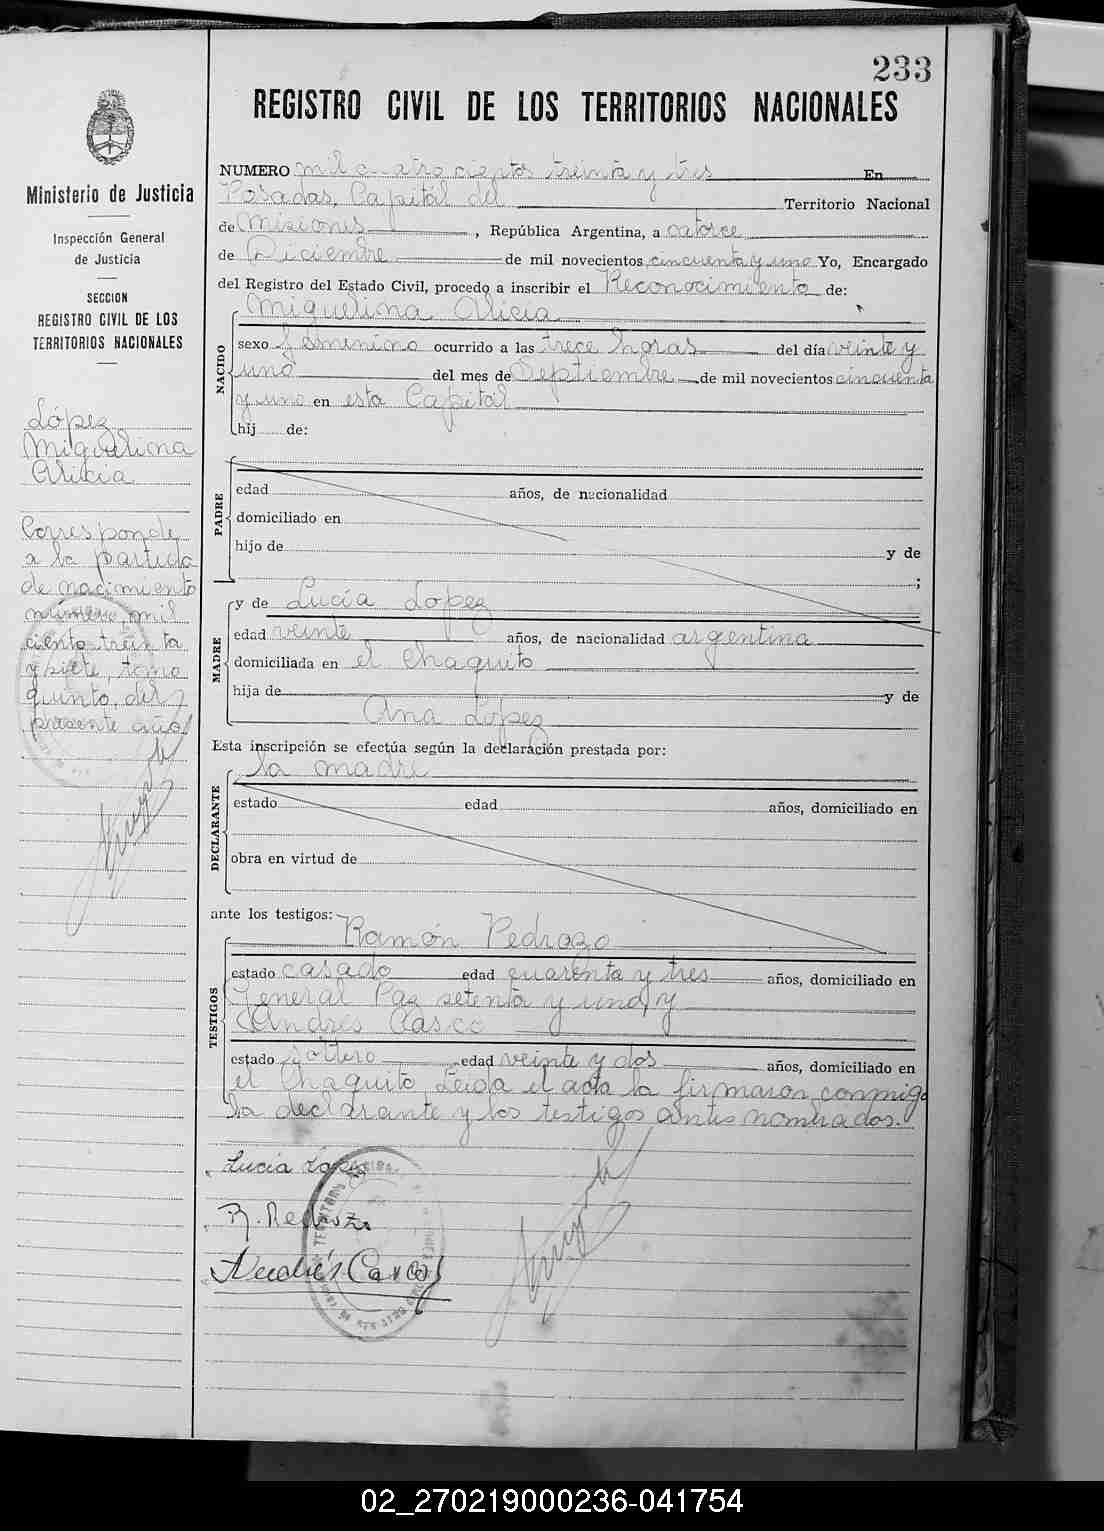 233
REGISTRO CIVIL DE LOS TERRITORIOS NACIONALES
Ministerio de Justicia
Inspección General
de Justicia
SECCION
REGISTRO CIVIL DE LOS
TERRITORIOS NACIONALES
López
Miguelina
Alicia
Corresponde
a la partida
de nacimiento
número, mil
ciento treinta
y siete, tomo
quinto, del
presente año
NUMERO mil cuatrocientos treinta y tres En
Posadas, Capital del Territorio Nacional
de Misiones, República Argentina, a catorce
de Diciembre de mil novecientos cincuenta y uno Yo, Encargado
del Registro del Estado Civil, procedo a inscribir el Reconocimiento de:
Miguelina Alicia
NACIDO
sexo femenino ocurrido a las trece horas del día veinte y
uno del mes de Septiembre de mil novecientos cincuenta
y uno en esta Capital
hij de:
PADRE
edad años, de nacionalidad
domiciliado en
hijo de y de
;
MADRE
y de Lucía Lopez
edad veinte años, de nacionalidad argentina
domiciliada en el Chaquito
hija de y de
Ana Lopez
Esta inscripción se efectúa según la declaración prestada por:
la madre
DECLARANTE
estado edad años, domiciliado en
obra en virtud de
ante los testigos:
Ramón Pedrozo
TESTIGOS
estado casado edad cuarenta y tres años, domiciliado en
General Paz setenta y uno, y
Andrés Casco
estado soltero edad veinte y dos años, domiciliado en
el Chaquito Leida el acta la firmaron conmigo
la declarante y los testigos antes nombrados.
Lucia López
R. Pedrozo
Andrés Casco
02_270219000236-041754